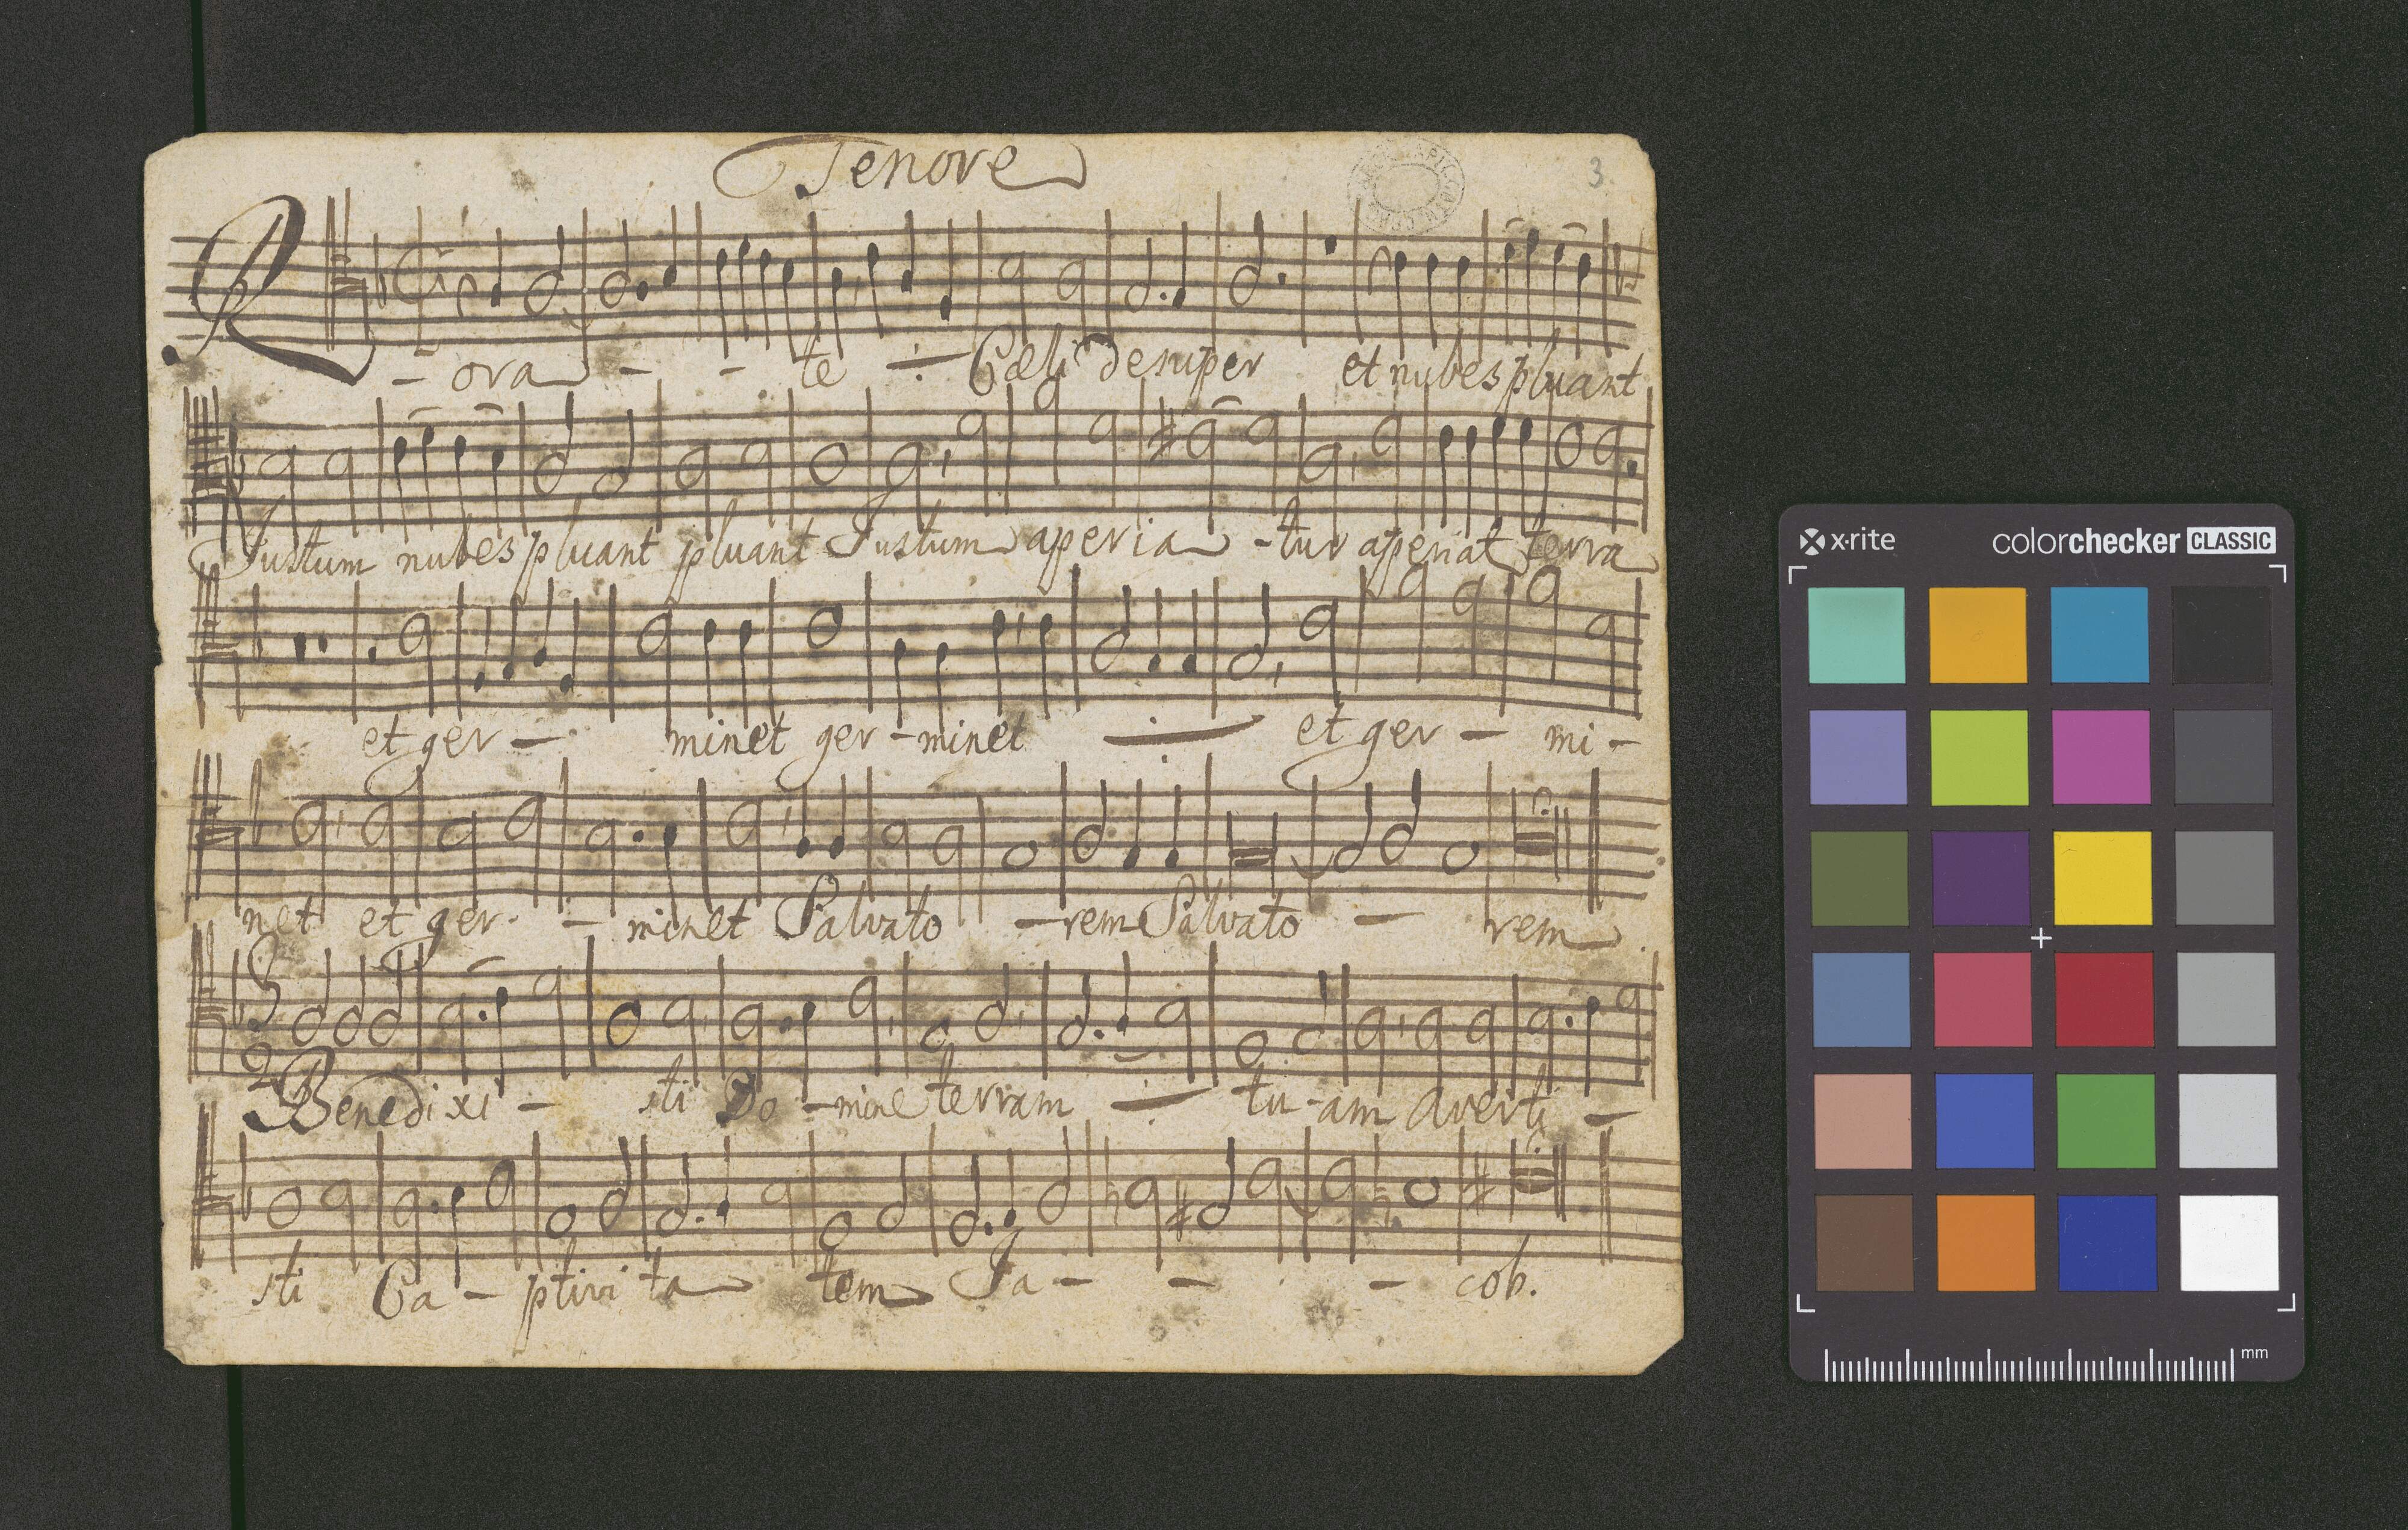 Tenore
3
R - ora - - te Cæli desuper et nubes pluant
Justum nubes pluant pluant Justum aperia - tur aperiat terra
et ger - minet ger - minet et ger - mi -
net et ger - minet Salvato - rem Salvato - rem
3
2
Benedixi - sti Do - mine terram tu - am averti -
sti Ca - ptivi ta tem Ja - - - cob.
x·rite colorchecker CLASSIC
mm